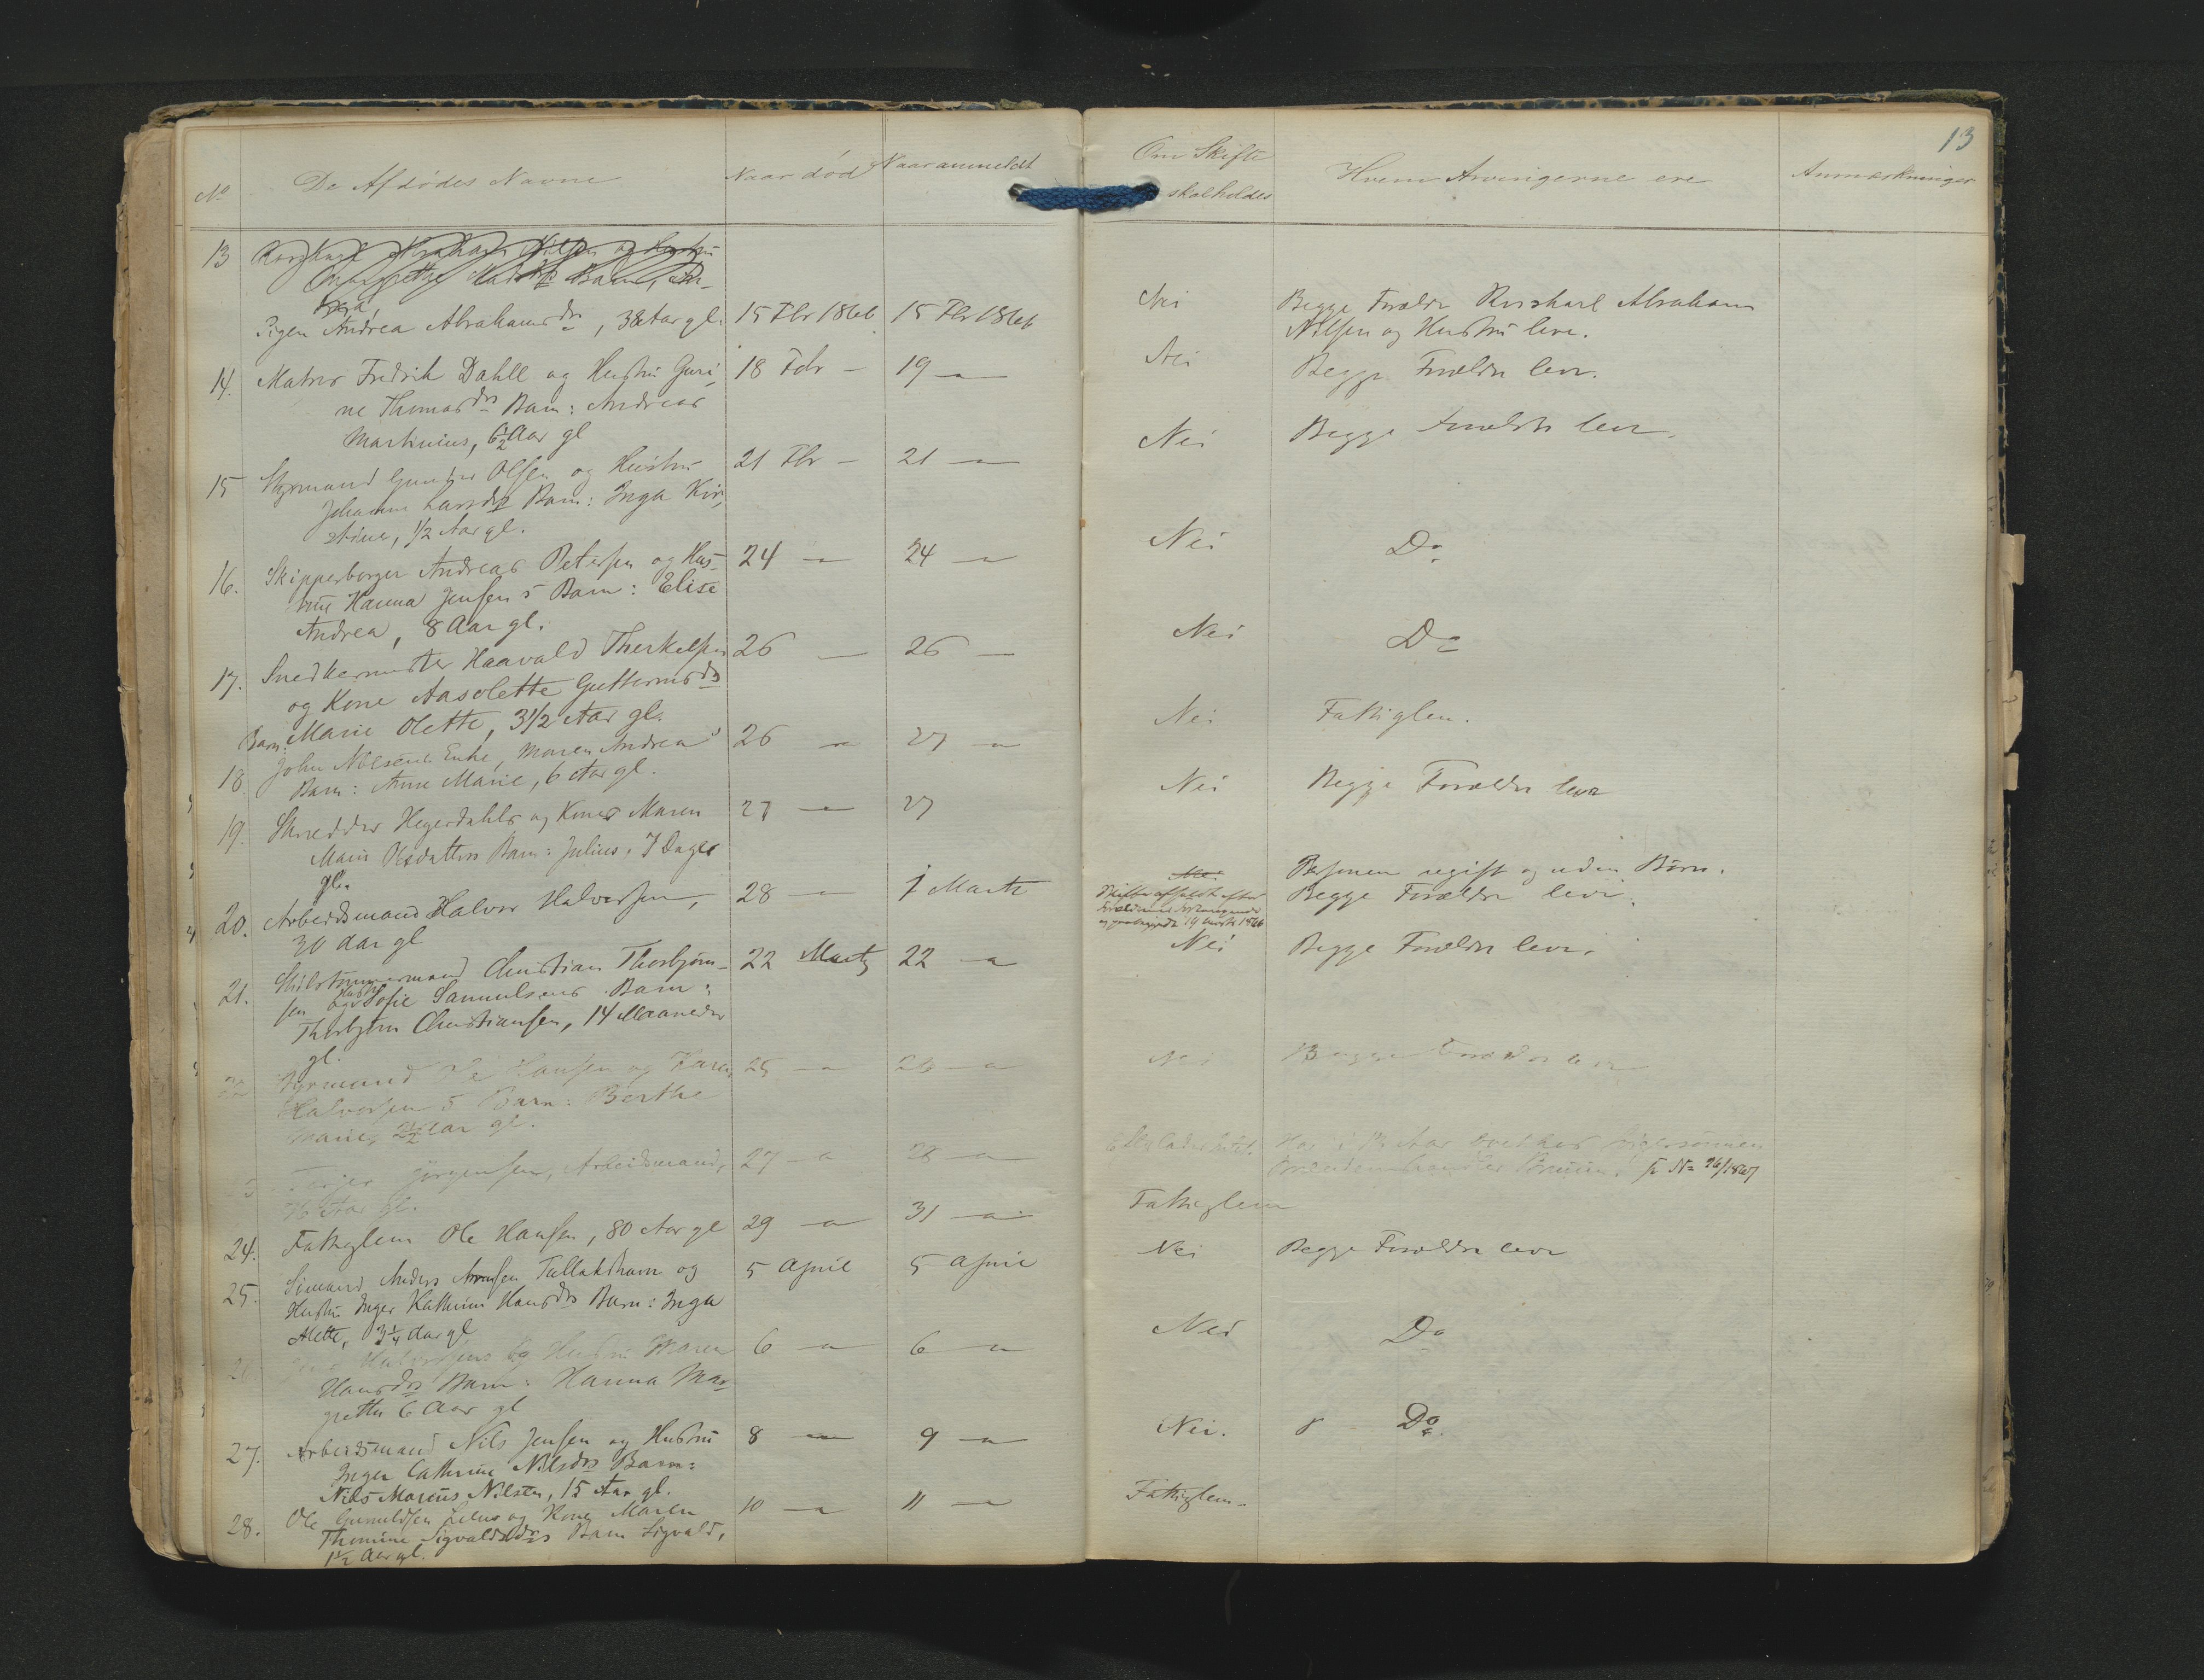 13
No
De Afdødes Navne
Naar død
Naar anmeldt
Om Skifte
skal holdes
Hvem Arvingerne ere
Anmærkninger
13
Pigen Andrea Abrahamsdr, 38 Aar gl.
15 Fbr 1866
15 Fbr 1866
Nei
Begge Forældre Abraham
Nilsen og Hustru leve.
14.
Matros Fredrik Dahll og Hustru Guri-
ne Thomasdrs Barn: Andreas
Martinius, 6 1/2 Aar gl
18 Febr —
19 —
Nei
Begge Forældre leve.
15
Styrmand Gunder Olsen og Hustru
Johanne Larsdrs Barn: Inga Kir-
stine, 1/2 Aar gl.
21 Fbr —
21 —
Nei
Begge Forældre leve.
16.
Skipperborger Andreas Petersen og Hus-
tru Hanna Jensens Barn: Elise
Andrea, 8 Aar gl.
24 —
24 —
Nei
Do
17.
Snedkermester Haavald Therkelsen
og Kone Aasolette Guttormsdrs
Barn: Marie Olette, 3 1/2 Aar gl.
26 —
26 —
Nei
Do
18
John Nilsens Enke, Maren Andreas
Barn: Anne Marie, 6 Aar gl.
26 —
27 —
Nei
Fattiglem.
19.
Skrædder Hegerdahls og Kones Maren
Marie Olsdatters Barn: Julius, 7 Dage
gl.
27 —
27
Nei
Begge Forældre leve
20.
Arbeidsmand Halvor Halvorsen,
30 Aar gl
28 —
1 Marts
Nei
Skifte afholdt efter
Forældrenes
19 Marts 1866
Personen ugift og uden Børn.
Begge Forældre leve.
21.
Skibstømmermand Christian Thorbjørn-
sen og Hustru Sofie Samuelsens Barn:
Thorbjørn Christiansen, 14 Maaneder
gl.
22 Marts
22 —
Nei
Begge Forældre leve.
22
Styrmand Ole Hansen og Karen
Halvorsens Barn: Berthe
Marie, 2 1/2 Aar gl.
25 —
26 —
Nei
Begge Forældre leve
Jørgensen, Arbeidsmand,
Aar gl.
27 —
28 —
No 96/1867
24.
Fattiglem Ole Hansen, 80 Aar gl
29 —
31 —
Fattiglem
25.
Sømand Anders Tallakshavn og
Hustru Inger Kathrine Hansdrs Barn: Inga
Mette, 3 1/4 Aar gl
5 April
5 April
Nei
Begge Forældre leve
26
Halvorsens og Hustru Maren
Hansdrs Barn: Hanna Mar-
grethe 6 Aar gl
6 —
6 —
Nei
Do
27.
Arbeidsmand Nils Jensen og Hustru
Inger Cathrine Nilsdrs Barn:
Nils Marcus Nilsen, 15 Aar gl.
8 —
9 —
Nei.
Do.
28.
Ole Gunuldsen og Kone Maren
Thomine Sigvaldsdrs Barn Sigvald,
1 1/2 Aar gl.
10 —
11 —
Fattiglem.